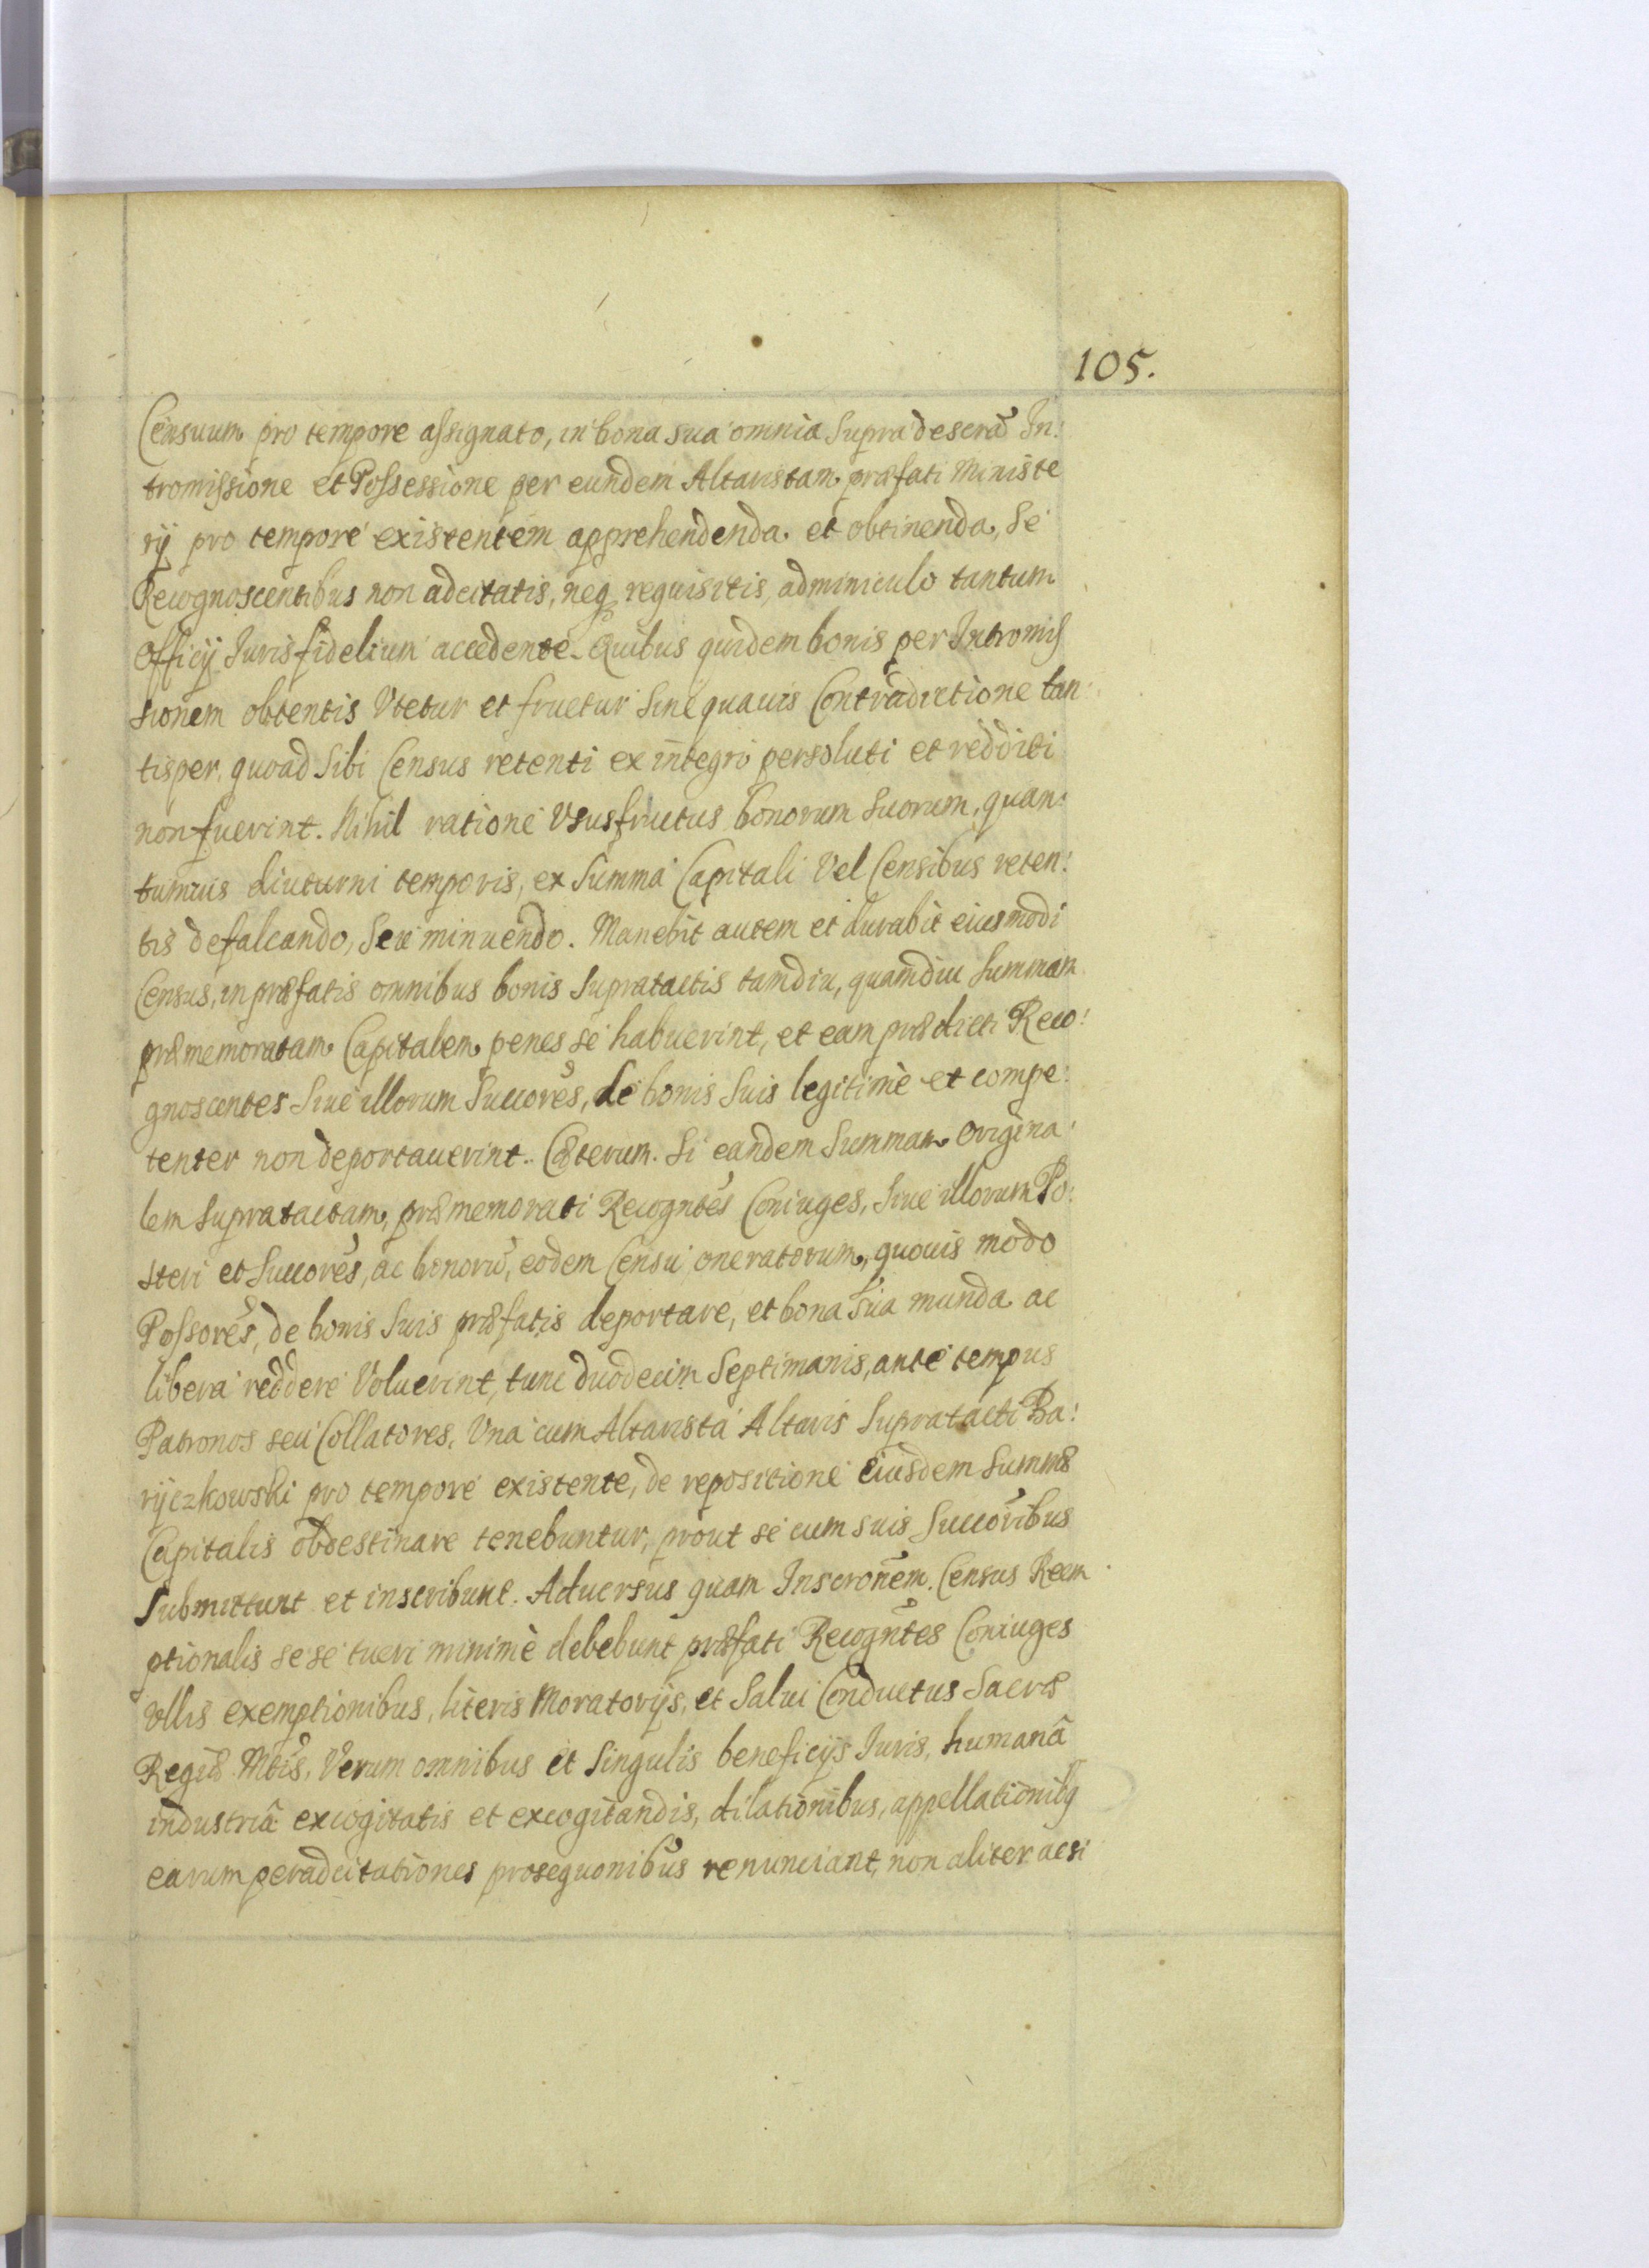 105.
Censuum pro tempore assignato, in bona sua omnia supra descrã In:
tromissione et Possessione per eundem Altaristam præfati Ministe
rij pro tempore existentem apprehendenda et obtinenda, se
Recognoscentibus non adcitatis, neq requisitis, adminiculo tantum
Officij Iurisfidelium accedente. Quibus quidem bonis per Intromis
sionem obtentis Vtetur et fruetur sine quauis Contradictione tan:
tisper, quoad sibi Census retenti ex integro persoluti et redditi
non fuerint. Nihil ratione Vsusfructus bonorum suorum, quan:
tumuis diuturni temporis, ex summa Capitali Vel Censibus reten:
tis defalcando, seu minuendo. Manebit autem et durabit eiusmodi
Census, in præfatis omnibus bonis supratactis tamdiu, quamdiu summam
præmemoratam Capitalem penes se habuerint, et eam prædicti Reco:
gnoscentes siue illorum Succores, de bonis suis legitimè et compe:
tenter non deportauerint. Cæterum. Si eandem summam Origina:
lem supratactam, præmemorati Recogntes Coniuges, siue illorum Po:
steri et Succores, ac bonorũ, eodem Censu oneratorum, quouis modo
Possores, de bonis suis præfatis deportare, et bona sua munda ac
libera reddere Voluerint, tunc duodecim Septimanis, ante tempus
Patronos seu Collatores, Vna cum Altarista Altaris supratacti Ba:
ryczkowski pro tempore existente, de repositione eiusdem summæ
Capitalis obdestinare tenebuntur, prout se cum suis Succoribus
submittunt et inscribunt. Aduersus quam Inscronem. Census Reem
ptionalis sese tueri minimè debebunt præfati Recogntes Coniuges
vllis exemptionibus, literis Moratorijs, et Salui Conductus Sacræ
Regiæ Mtis, Verum omnibus et singulis beneficijs Iuris, humanâ
industriâ excogitatis et excogitandis, dilationibus, appellationibq
earum peradcitationes prosequonibus renunciant, non aliter acsi